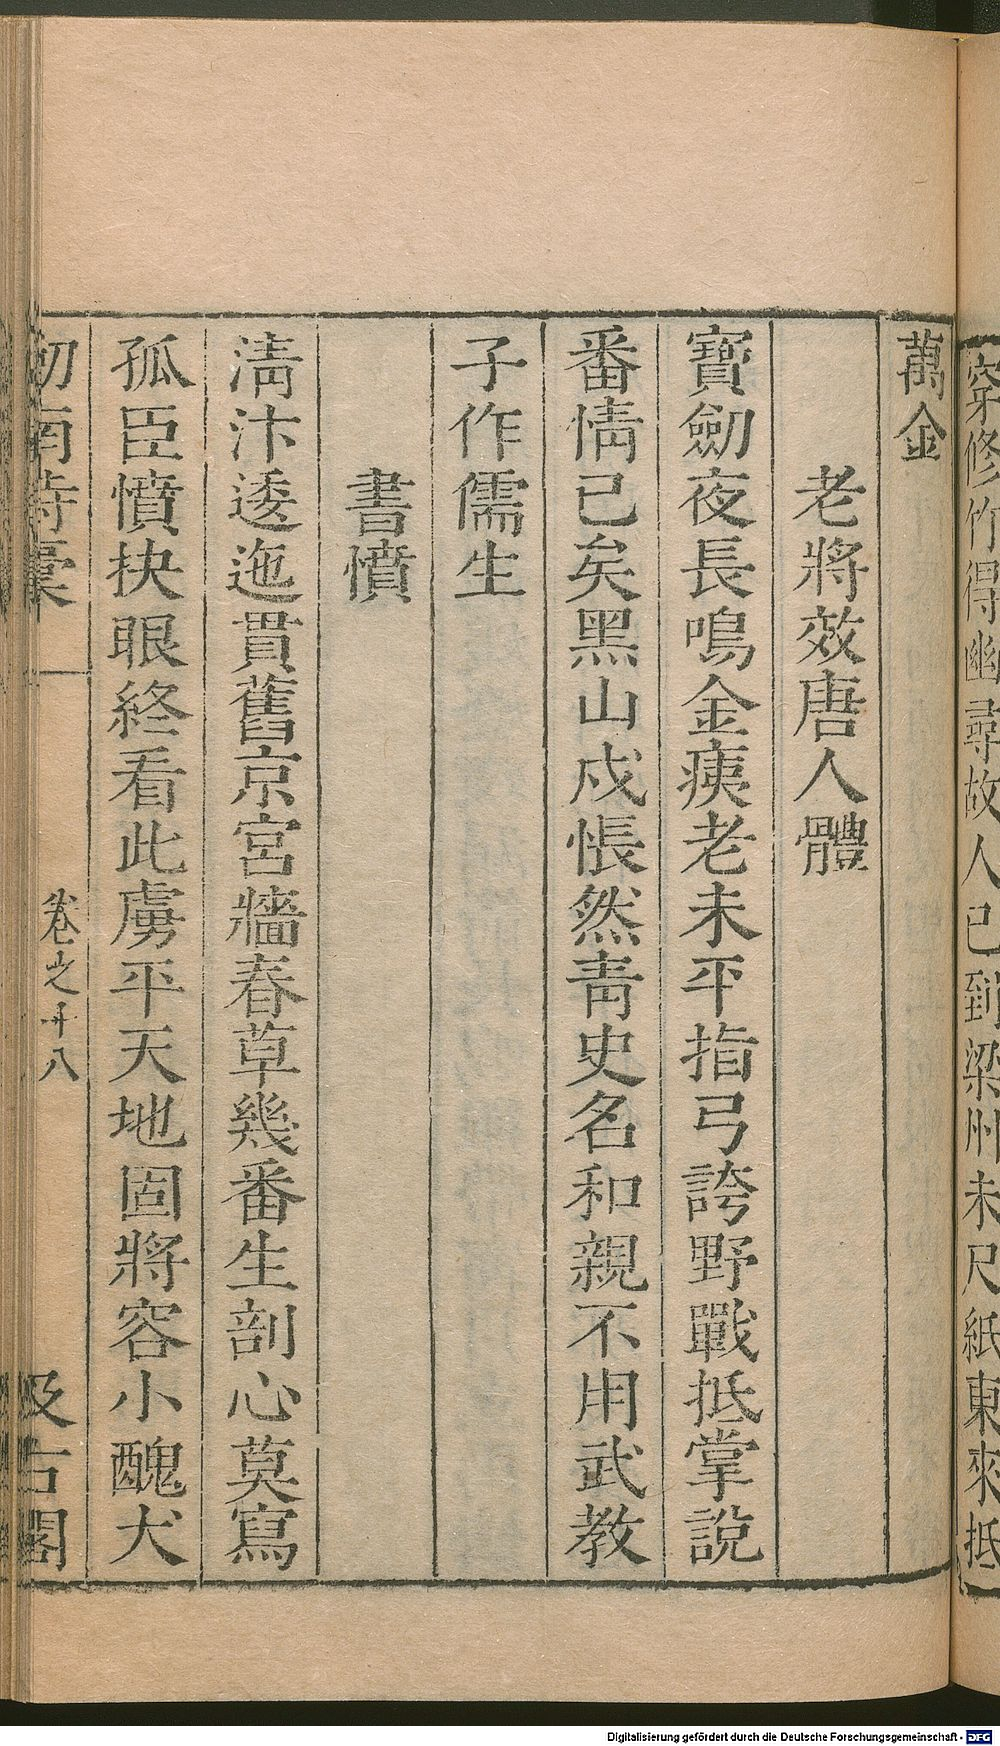 穿修竹得幽尋故人已到梁州未尺紙東來抵
萬金
老將效唐人體
寶劒夜長鳴金痍老未平指弓誇野戰抵掌說
番情已矣黑山戍悵然靑史名和親不用武教
子作儒生
書憤
淸汴逶迤貫舊京宮牆春草幾番生剖心莫寫
孤臣憤抉眼終看此虜平天地固將容小醜犬
劒南詩稾
卷之十八
汲古閣
Digitalisierung gefördert durch die Deutsche Forschungsgemeinschaft - DFG